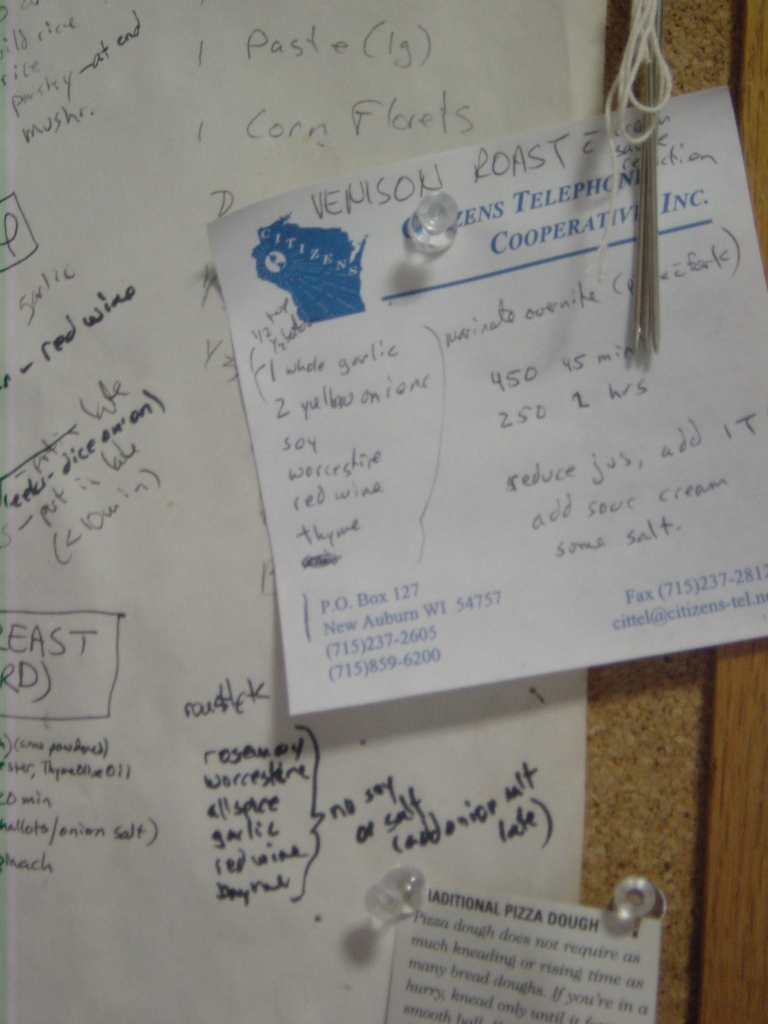 parsley - at end
mushr.
1 Paste (lg)
1 Corn Florets
garlic
- red wine
late
dice onion)
- put in late
(<10min)
VENISON ROAST c̄ cream
sauce
reduction
CITIZENS
CITIZENS TELEPHONE
COOPERATIVE INC.
1/2 top
1/2
1 whole garlic
2 yellow onions
soy
worcestire
red wine
thyme
marinate overnite
450 45 min
250 2 hrs
reduce jus, add 1T
add sour cream
some salt.
P.O. Box 127
New Auburn WI 54757
(715)237-2605
(715)859-6200
Fax (715)237-2812
cittel@citizens-tel.ne
EAST
RD)
powdered)
Thyme Olive Oil
0 min
allots/onion salt)
inach
rosemary
worcestire
allspice
garlic
red wine
no soy
or salt
(add onion salt
late)
ADITIONAL PIZZA DOUGH
Pizza dough does not require as
much kneading or rising time as
many bread doughs. If you're in a
hurry, knead only until it
smooth ball.